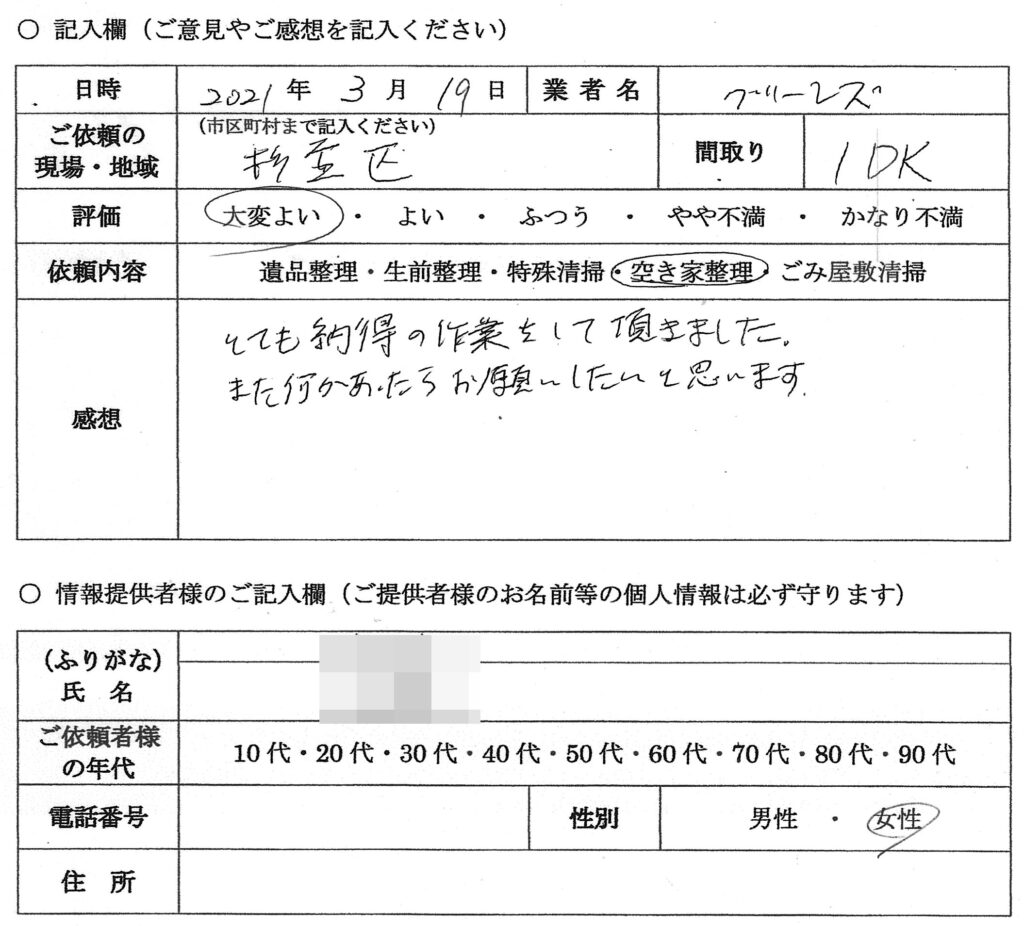 ○ 記入欄（ご意見やご感想を記入ください）
日時 2021年 3月 19日 業者名 グリーンズ
ご依頼の現場・地域 （市区町村まで記入ください） 杉並区 間取り 1DK
評価 大変よい ・ よい ・ ふつう ・ やや不満 ・ かなり不満
依頼内容 遺品整理・生前整理・特殊清掃・空き家整理・ごみ屋敷清掃
感想
とても納得の作業をして頂きました。
また何かあったらお願いしたいと思います。
○ 情報提供者様のご記入欄（ご提供者様のお名前等の個人情報は必ず守ります）
（ふりがな）
氏 名
ご依頼者様の年代 10代・20代・30代・40代・50代・60代・70代・80代・90代
電話番号 性別 男性 ・ 女性
住 所